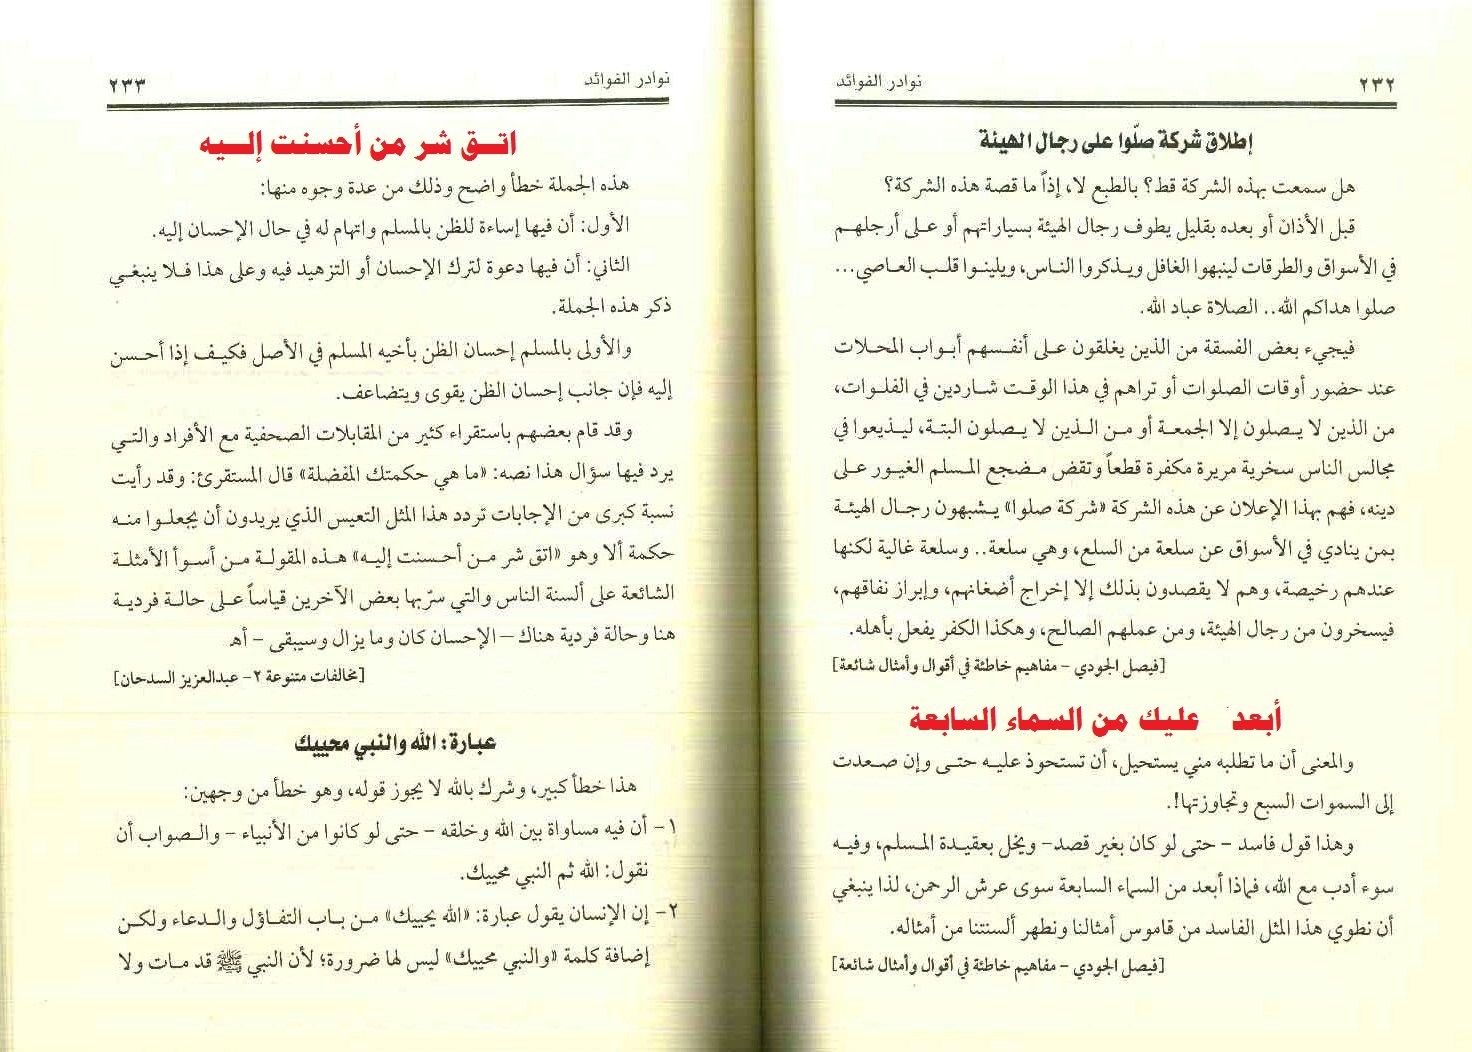 ٢٣٢
نوادر الفوائد
إطلاق شركة صلّوا على رجال الهيئة
هل سمعت بهذه الشركة قط؟ بالطبع لا، إذاً ما قصة هذه الشركة؟
قبل الأذان أو بعده بقليل يطوف رجال الهيئة بسياراتهم أو على أرجلهم
في الأسواق والطرقات لينبهوا الغافل ويذكروا الناس، ويلينوا قلب العاصي...
صلوا هداكم الله.. الصلاة عباد الله.
فيجيء بعض الفسقة من الذين يغلقون على أنفسهم أبواب المحلات
عند حضور أوقات الصلوات أو تراهم في هذا الوقت شاردين في الفلوات،
من الذين لا يصلون إلا الجمعة أو من الذين لا يصلون البتة، ليذيعوا في
مجالس الناس سخرية مريرة مكفرة قطعاً وتقض مضجع المسلم الغيور على
دينه، فهم بهذا الإعلان عن هذه الشركة «شركة صلوا» يشبهون رجال الهيئة
بمن ينادي في الأسواق عن سلعة من السلع، وهي سلعة.. وسلعة غالية لكنها
عندهم رخيصة، وهم لا يقصدون بذلك إلا إخراج أضغانهم، وإبراز نفاقهم،
فيسخرون من رجال الهيئة، ومن عملهم الصالح، وهكذا الكفر يفعل بأهله.
[فيصل الجودي - مفاهيم خاطئة في أقوال وأمثال شائعة]
أبعد عليك من السماء السابعة
والمعنى أن ما تطلبه مني يستحيل، أن تستحوذ عليه حتى وإن صعدت
إلى السموات السبع وتجاوزتها!.
وهذا قول فاسد - حتى لو كان بغير قصد- ويخل بعقيدة المسلم، وفيه
سوء أدب مع الله، فماذا أبعد من السماء السابعة سوى عرش الرحمن، لذا ينبغي
أن نطوي هذا المثل الفاسد من قاموس أمثالنا ونطهر ألسنتنا من أمثاله.
[فيصل الجودي - مفاهيم خاطئة في أقوال وأمثال شائعة]
نوادر الفوائد
٢٣٣
اتق شر من أحسنت إليه
هذه الجملة خطأ واضح وذلك من عدة وجوه منها:
الأول: أن فيها إساءة للظن بالمسلم واتهام له في حال الإحسان إليه.
الثاني: أن فيها دعوة لترك الإحسان أو التزهيد فيه وعلى هذا فلا ينبغي
ذكر هذه الجملة.
والأولى بالمسلم إحسان الظن بأخيه المسلم في الأصل فكيف إذا أحسن
إليه فإن جانب إحسان الظن يقوى ويتضاعف.
وقد قام بعضهم باستقراء كثير من المقابلات الصحفية مع الأفراد والتي
يرد فيها سؤال هذا نصه: «ما هي حكمتك المفضلة» قال المستقرئ: وقد رأيت
نسبة كبرى من الإجابات تردد هذا المثل التعيس الذي يريدون أن يجعلوا منه
حكمة ألا وهو «اتق شر من أحسنت إليه» هذه المقولة من أسوأ الأمثلة
الشائعة على ألسنة الناس والتي سرّبها بعض الآخرين قياساً على حالة فردية
هنا وحالة فردية هناك – الإحسان كان وما يزال وسيبقى - أهـ
[مخالفات متنوعة ٢- عبدالعزيز السدحان]
عبارة: الله والنبي محييك
هذا خطأ كبير، وشرك بالله لا يجوز قوله، وهو خطأ من وجهين:
١- أن فيه مساواة بين الله وخلقه - حتى لو كانوا من الأنبياء - والصواب أن
نقول: الله ثم النبي محييك.
٢- إن الإنسان يقول عبارة: «الله يحييك» من باب التفاؤل والدعاء ولكن
إضافة كلمة «والنبي محييك» ليس لها ضرورة؛ لأن النبي ﷺ قد مات ولا